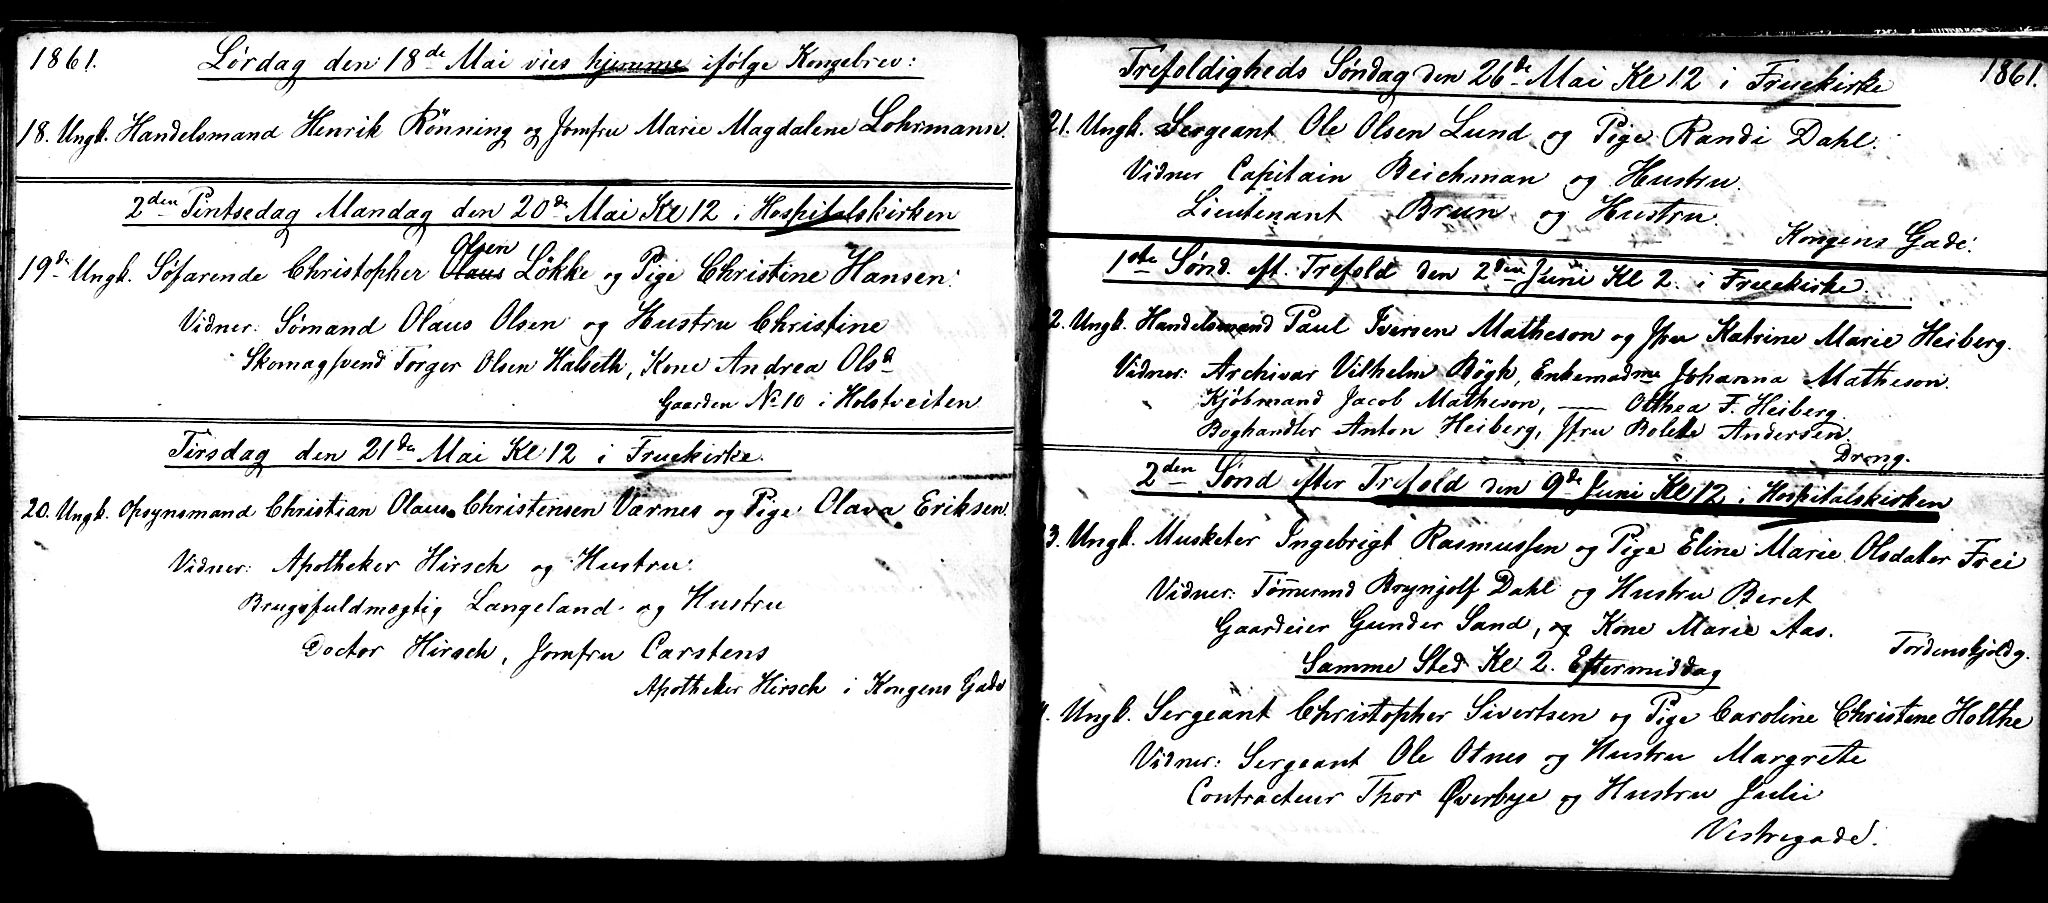 1861. Lørdag den 18de Mai vies hjemme ifølge Kongebrev:
18. Ungk. Handelsmand Henrik Rönning og Jomfru Marie Magdalene Lohrmann.
2den Pintsedag Mandag den 20de Mai Kl 12 i Hospitalskirken
Olsen
19de Ungk. Søfarende Christopher Olaus Lökke og Pige Christine Hansen.
Vidner: Sømand Olaus Olsen og Hustru Christine
Skomagsvend Torger Olsen Halseth, Kone Andrea Olsd
Gaarden No 10 i Holstveiten
Tirsdag den 21de Mai Kl 12 i Fruekirke.
20. Ungk. Opsynsmand Christian Olaus Christensen Værnes og Pige Olava Eriksen.
Vidner: Apotheker Hirsch og Hustru.
Brugsfuldmægtig Langeland og Hustru
Doctor Hirsch, Jomfru Carstens
Apotheker Hirsch i Kongens Gade
Trefoldigheds Søndag den 26de Mai Kl 12 i Fruekirke 1861.
21. Ungk. Sergeant Ole Olsen Lund og Pige Randi Dahl.
Vidner Capitain Beichman og Hustru.
Lieutenant Brun og Hustru.
Kongens Gade.
1ste Sønd. eft. Trefold den 2den Juni Kl 2. i Fruekirke.
2. Ungk. Handelsmand Paul Iversen Matheson og Jfru Katrine Marie Heiberg.
Vidner: Archivar Vilhelm Bögh, Enkemadme Johanna Matheson.
Kjöbmand Jacob Matheson, — Otthea F. Heiberg.
Boghandler Anton Heiberg, Jfru Bolette Andersen.
Drong.
2den Sønd efter Trefold den 9de Juni Kl 12 i Hospitalskirken
3. Ungk. Musketer Ingebrigt Rasmussen og Pige Eline Marie Olsdatter Frei
Vidner: Tømmermd Brynjolf Dahl og Hustru Beret
Gaardeier Gunder Sand, og Kone Marie Aas.
Tordenskjoldg.
Samme Sted Kl 2. Eftermiddag
Ungk. Sergeant Christopher Sivertsen og Pige Caroline Christine Holthe
Vidner: Sergeant Ole Otnes og Hustru Margrete
Contracteur Thor Øverbye og Hustru Julie
Vestregade.